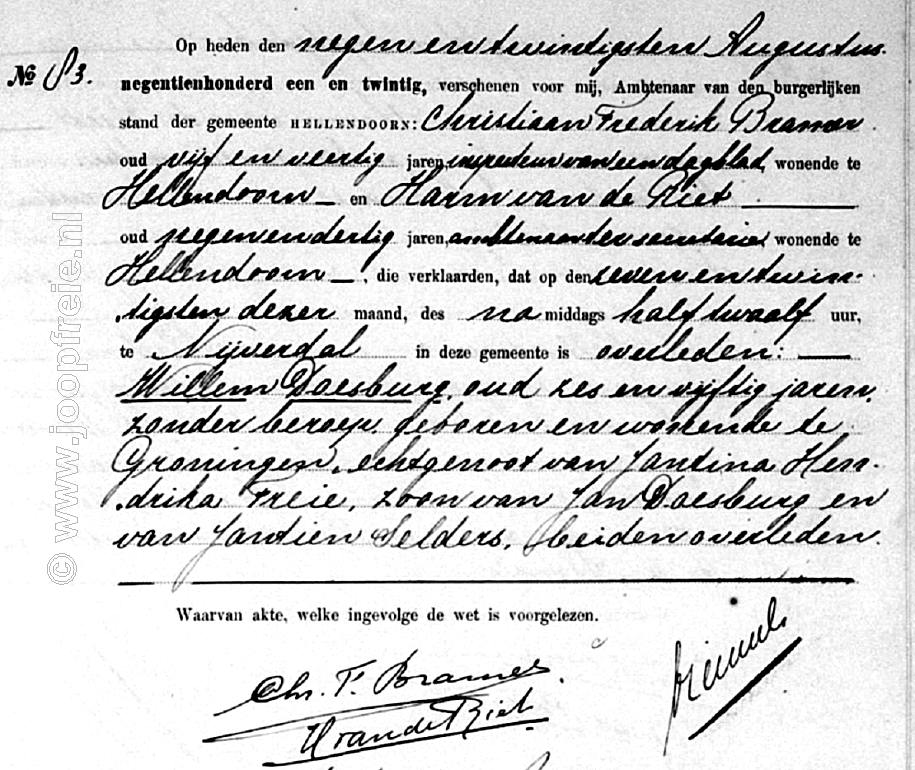 Op heden den negen en twintigsten Augustus
No 83.
negentienhonderd een en twintig, verschenen voor mij, Ambtenaar van den burgerlijken
stand der gemeente HELLENDOORN: Christiaan Frederik Bramer
oud vijf en veertig jaren, inspecteur van een dagblad, wonende te
Hellendoorn – en Harm van de Riet
oud negen en dertig jaren, ambtenaar der secretarie, wonende te
Hellendoorn –, die verklaarden, dat op den zeven en twin-
tigsten dezer maand, des na middags half twaalf uur,
te Nijverdal in deze gemeente is overleden: —
Willem Doesburg, oud zes en vijftig jaren,
zonder beroep, geboren en wonende te
Groningen, echtgenoot van Jantina Hen-
drika Freie, zoon van Jan Doesburg en
van Jantien Selders, beiden overleden.
Waarvan akte, welke ingevolge de wet is voorgelezen.
Chr. F. Bramer
H van de Riet
© www.joopfreie.nl